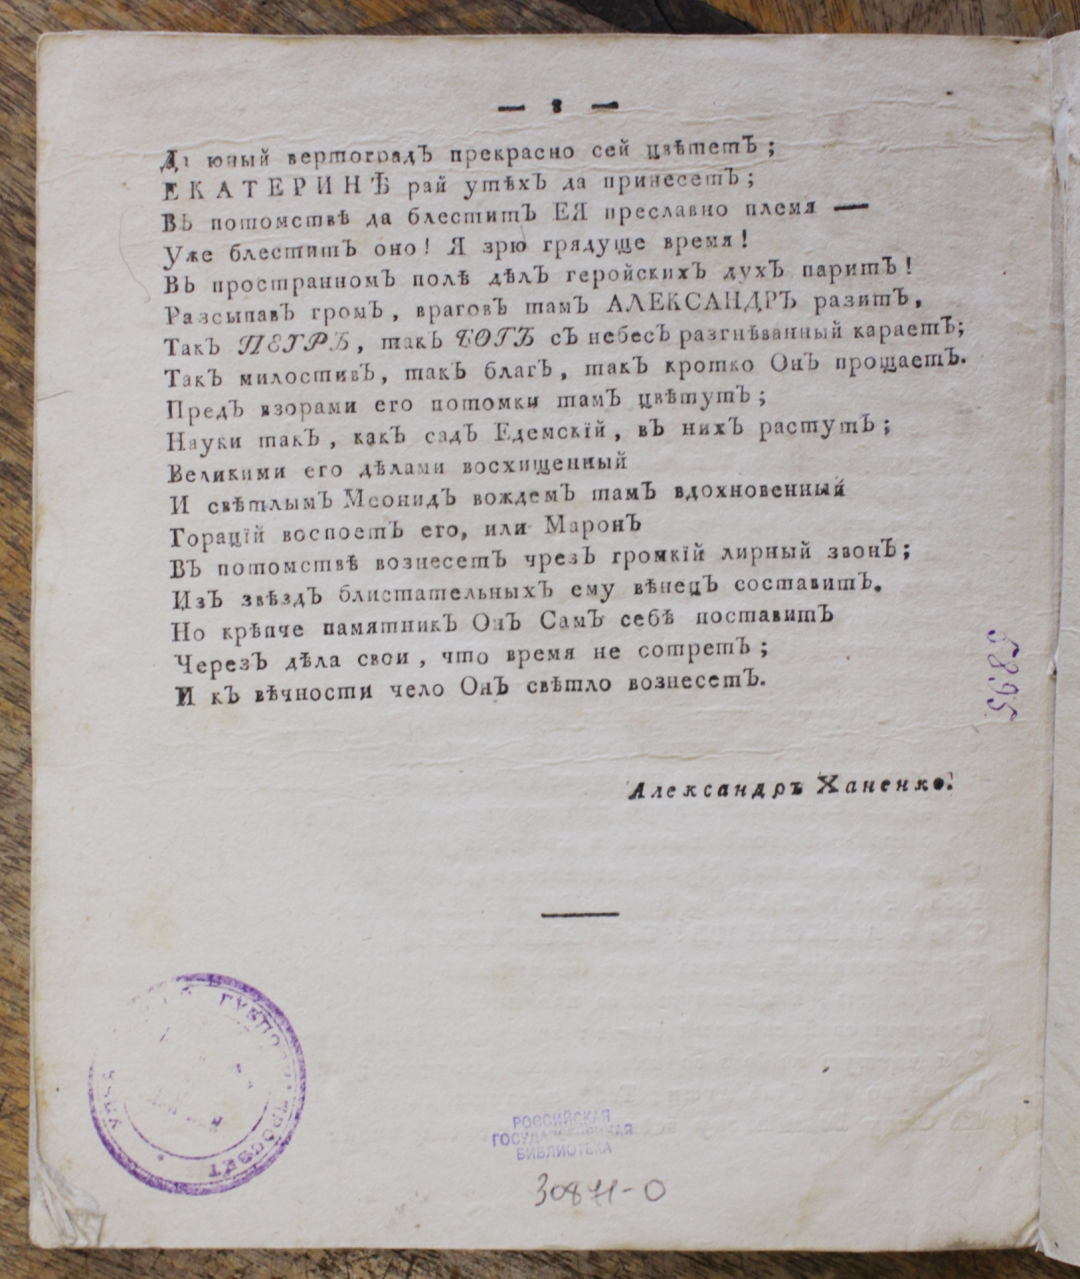 — 8 —
Да юный вертоградЪ прекрасно сей цвѣтетЪ;
ЕКАТЕРИНѢ рай утѣхЪ да принесетЪ;
ВЬ потомствѣ да блеститЪ ЕЯ преславно племя —
Уже блеститЪ оно! Я зрю грядуще время!
ВЬ пространномЪ полѣ дѣлЪ геройскихЪ духЪ паритЪ!
РазсыпавЪ громЪ, враговЪ тамЪ АЛЕКСАНДРЪ разитЪ,
ТакЪ ПЕТРЪ, такЪ БОГЪ сЪ небесЪ разгнѣванный караетЪ;
ТакЪ милостивЪ, такЪ благЪ, такЪ кротко ОнЪ прощаетЪ.
ПредЪ взорами его потомки тамЪ цвѣтутЪ;
Науки такЪ, какЪ садЪ Едемскій, вЪ нихЪ растутЪ;
Великими его дѣлами восхищенный
И свѣтлымЪ МеонидЪ вождемЪ тамЪ вдохновенный
Горацій воспоетЪ его, или МаронЪ
ВЪ потомствѣ вознесетЪ чрезЪ громкій лирный звонЪ;
ИзЪ звѣздЪ блистательныхЪ ему вѣнецЪ составитЪ.
Но крѣпче памятникЪ ОнЪ СамЪ себѣ поставитЪ
ЧерезЪ дѣла свои, что время не сотретЪ;
И кЪ вѣчности чело ОнЪ свѣтло вознесетЪ.
АлександрЪ Ханенко.
5895
РОССИЙСКАЯ
ГОСУДАРСТВЕННАЯ
БИБЛИОТЕКА
30871-0